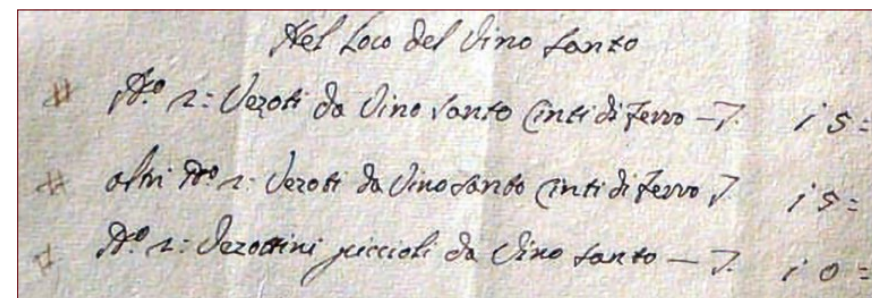 Nel Loco del Vino Santo
# N.º 2: Vezoti da Vino Santo Cinti di ferro — 15:
# altri N.º 2: Vezoti da Vino Santo Cinti di ferro 15:
# N.º 2: Vezottini piccioli da Vino Santo — 10: